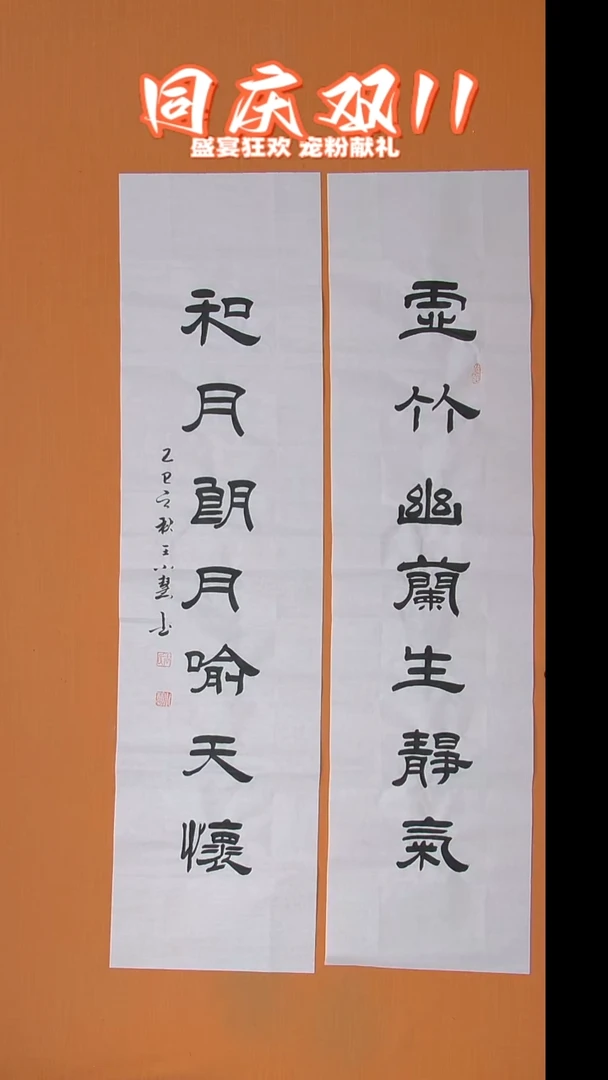 同庆双11
盛宴狂欢 宠粉献礼
虚竹幽蘭生靜氣
和月朗月喻天懷
乙巳之秋王小燕书